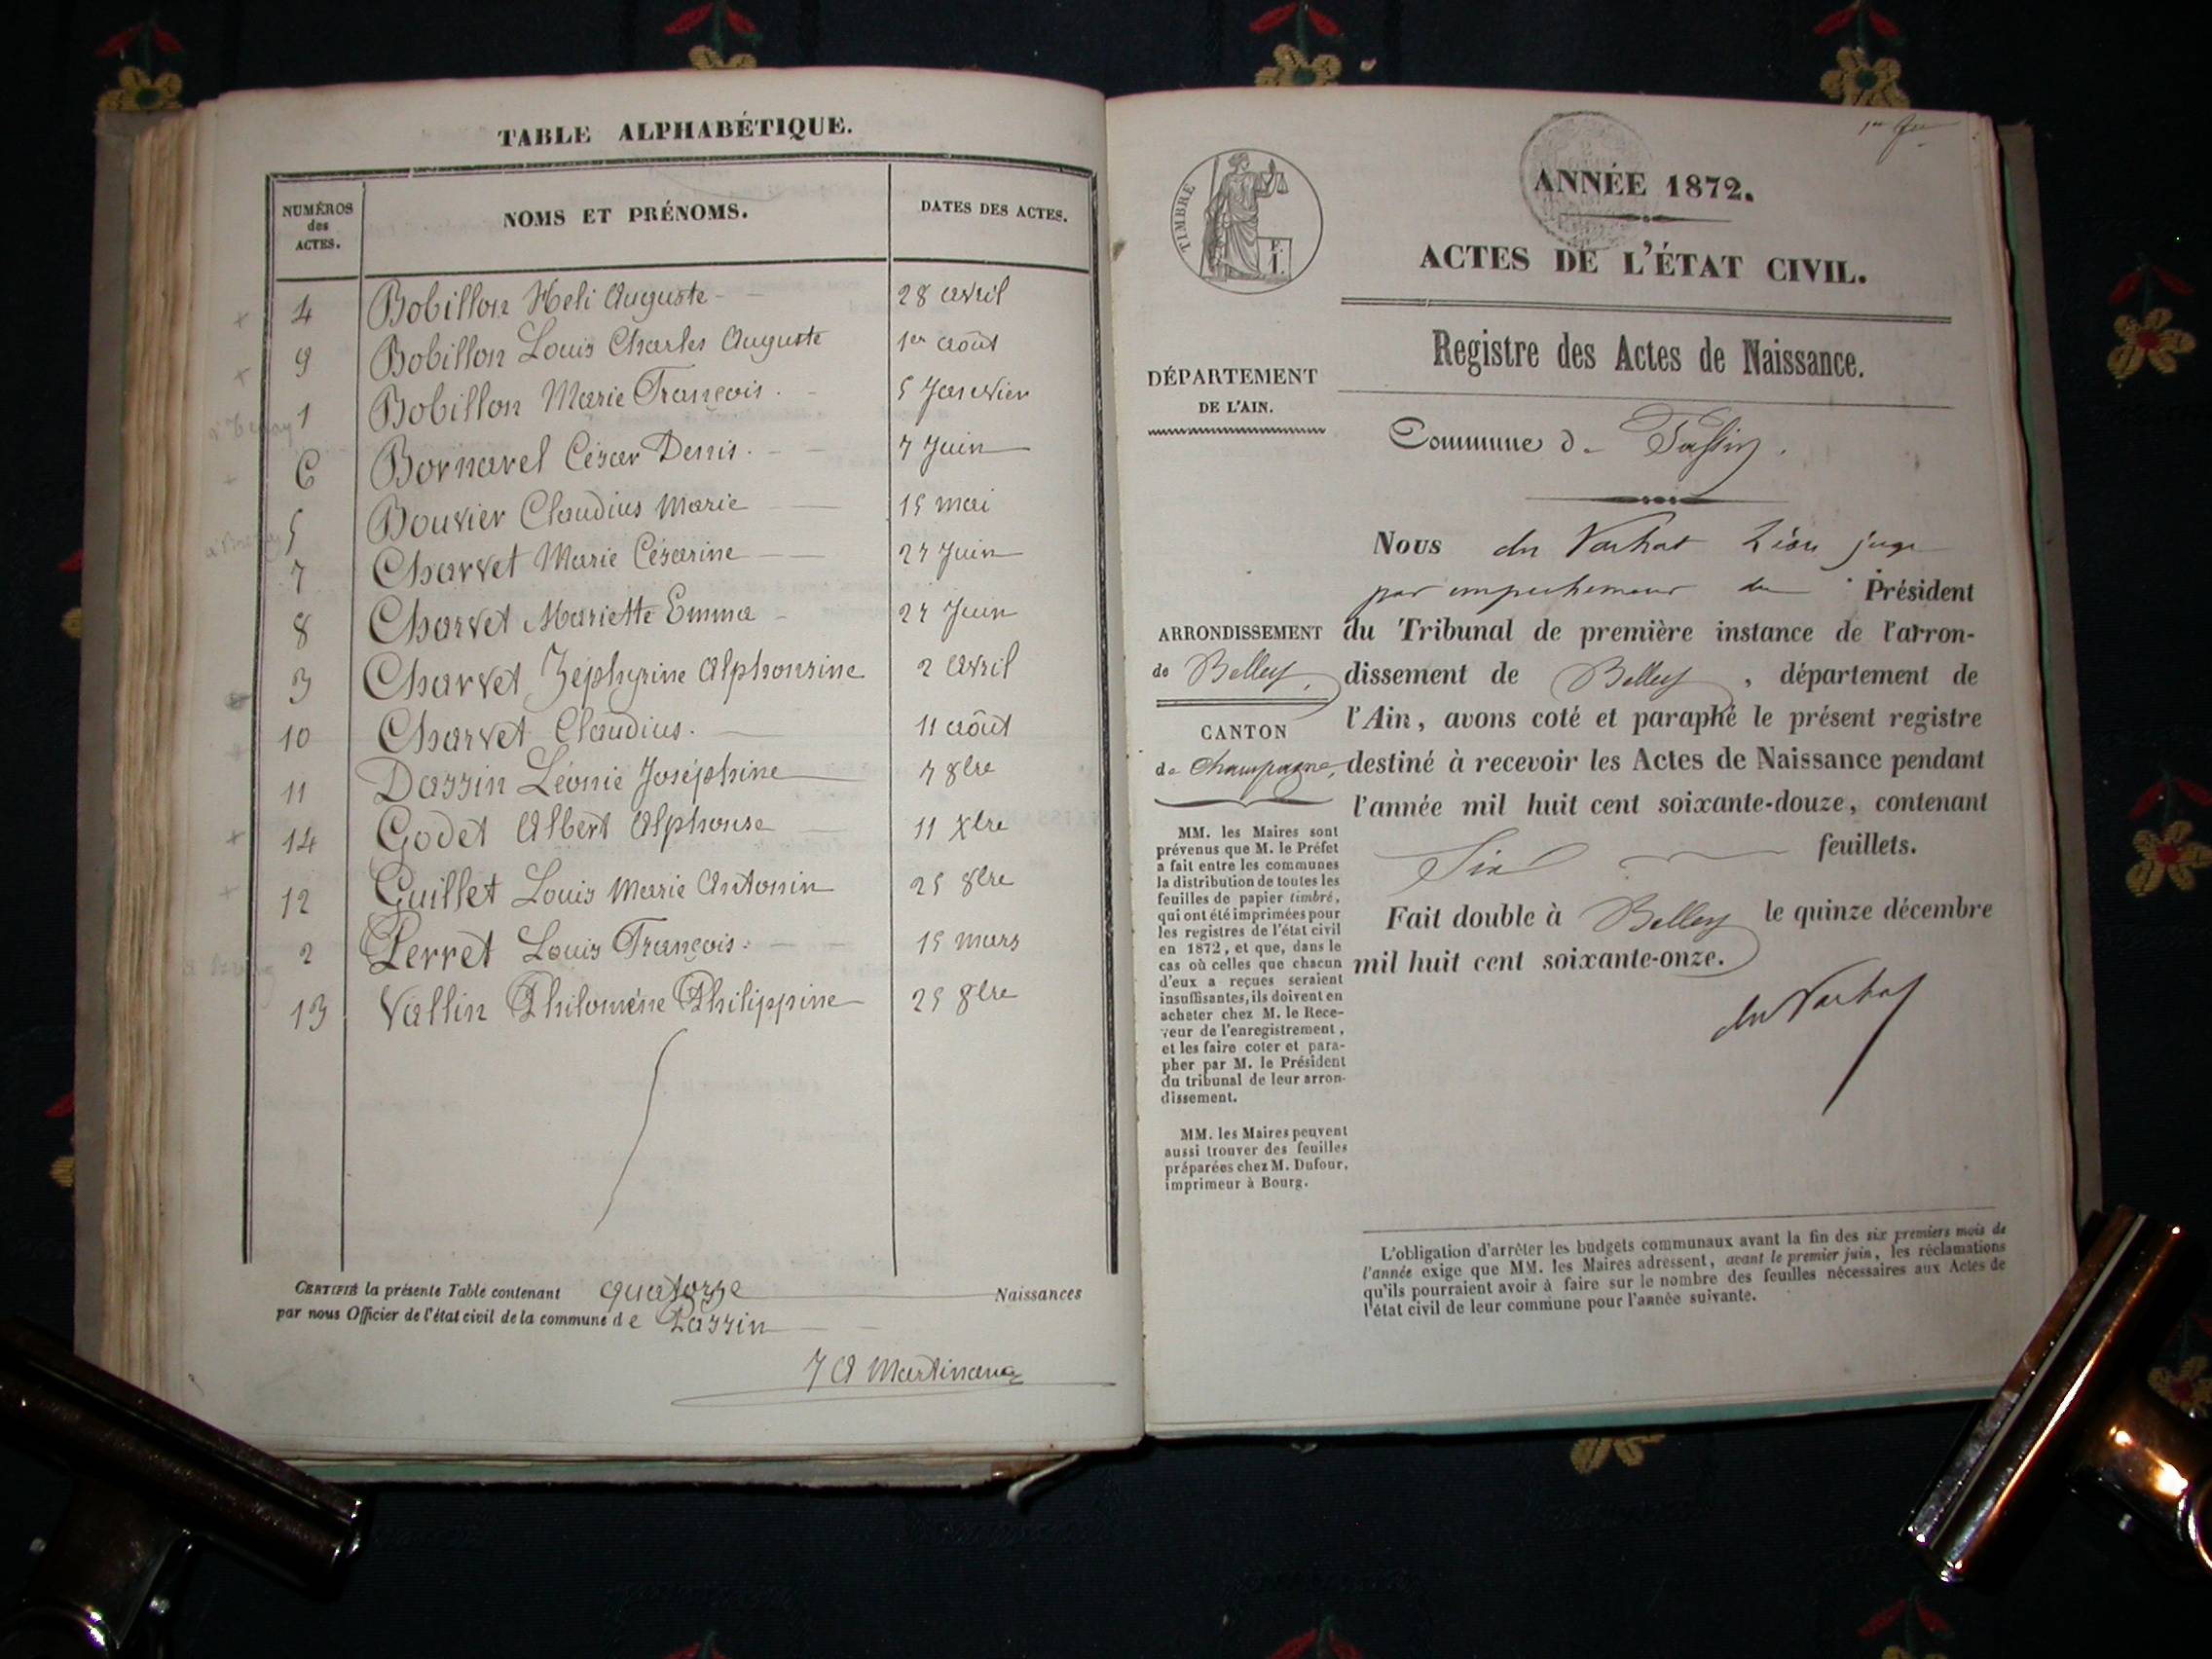 TABLE ALPHABÉTIQUE.
NUMÉROS des ACTES.
NOMS ET PRÉNOMS.
DATES DES ACTES.
4 Bobillon Héli Auguste 28 avril
9 Bobillon Louis Charles Auguste 1er août
1 Bobillon Marie François 5 Janvier
6 Bornarel César Denis. 7 Juin
5 Bouvier Claudius Marie 15 mai
7 Charvet Marie Césarine 27 Juin
8 Charvet Mariette Emma 27 Juin
3 Charvet Zéphyrine Alphonsine 2 avril
10 Charvet Claudius. 11 août
11 Dassin Léonie Joséphine 7 8bre
14 Godet Albert Alphonse 11 Xbre
12 Guillet Louis Marie Antonin 25 8bre
2 Perret Louis François. 15 mars
13 Vallin Philomène Philippine 25 8bre
CERTIFIÉ la présente Table contenant quatorze Naissances
par nous Officier de l'état civil de la commune de Passin
TIMBRE
ANNÉE 1872.
ACTES DE L'ÉTAT CIVIL.
Registre des Actes de Naissance.
DÉPARTEMENT
DE L'AIN.
Commune de Passin.
Nous du Varhat Léon juge
par empêchement du Président
ARRONDISSEMENT
de Belley,
du Tribunal de première instance de l'arron-
dissement de Belley, département de
l'Ain, avons coté et paraphé le présent registre
CANTON
de Champagne,
destiné à recevoir les Actes de Naissance pendant
l'année mil huit cent soixante-douze, contenant
Six feuillets.
Fait double à Belley le quinze décembre
mil huit cent soixante-onze.
du Varhat
MM. les Maires sont
prévenus que M. le Préfet
a fait entre les communes
la distribution de toutes les
feuilles de papier timbré,
qui ont été imprimées pour
les registres de l'état civil
en 1872, et que, dans le
cas où celles que chacun
d'eux a reçues seraient
insuffisantes, ils doivent en
acheter chez M. le Rece-
veur de l'enregistrement,
et les faire coter et para-
pher par M. le Président
du tribunal de leur arron-
dissement.
MM. les Maires peuvent
aussi trouver des feuilles
préparées chez M. Dufour,
imprimeur à Bourg.
L'obligation d'arrêter les budgets communaux avant la fin des six premiers mois de
l'année exige que MM. les Maires adressent, avant le premier juin, les réclamations
qu'ils pourraient avoir à faire sur le nombre des feuilles nécessaires aux Actes de
l'état civil de leur commune pour l'année suivante.